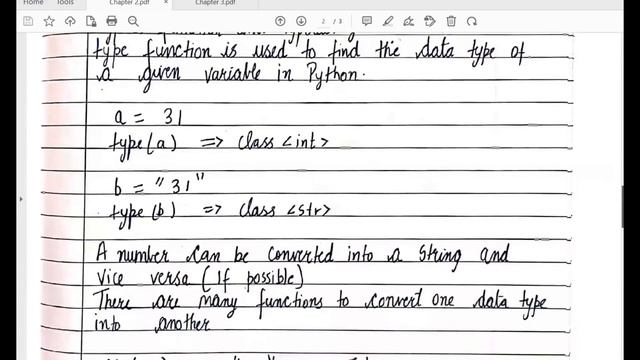 Home
Tools
Chapter 2.pdf
Chapter 3.pdf
2 / 3
type function is used to find the data type of
a given variable in Python.
a = 31
type(a) => class <int>
b = "31"
type(b) => class <str>
A number can be converted into a string and
vice versa (If possible)
There are many functions to convert one data type
into another